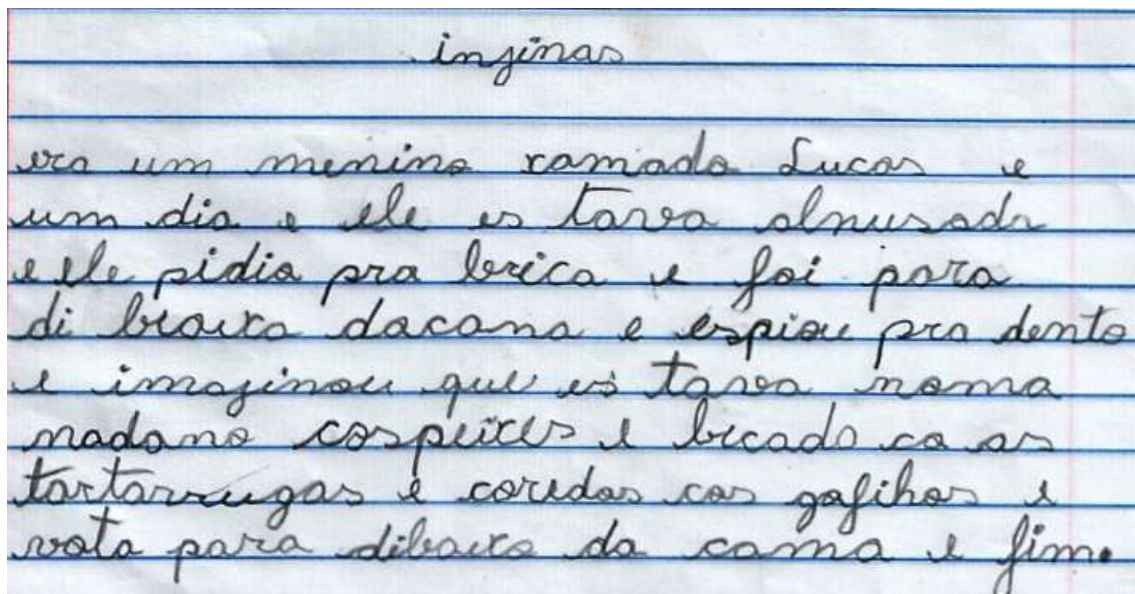 injinas
era um menino xamado Lucas e
um dia e ele es tava almusadu
e ele pidia pra brica e foi para
di braixo dacama e espiou pra dento
e imajinou que es tava noma
nadano cospeixes e bricado co as
tartarrugas e coredas cos gafihos e
vota para dibaixo da cama e fim.